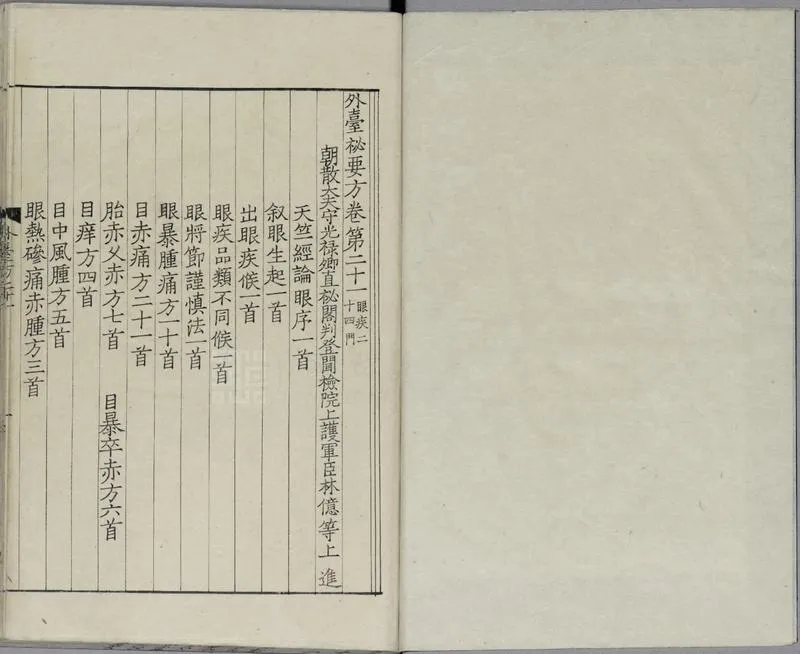 外臺祕要方卷第二十一眼疾二十四門
朝散大夫守光祿卿直祕閣判登聞檢院上護軍臣林億等上進
天竺經論眼序一首
叙眼生起一首
出眼疾候一首
眼疾品類不同候一首
眼將節謹慎法一首
眼暴腫痛方一十首
目赤痛方二十一首
胎赤久赤方七首 目暴卒赤方六首
目痒方四首
目中風腫方五首
眼熱磣痛赤腫方三首